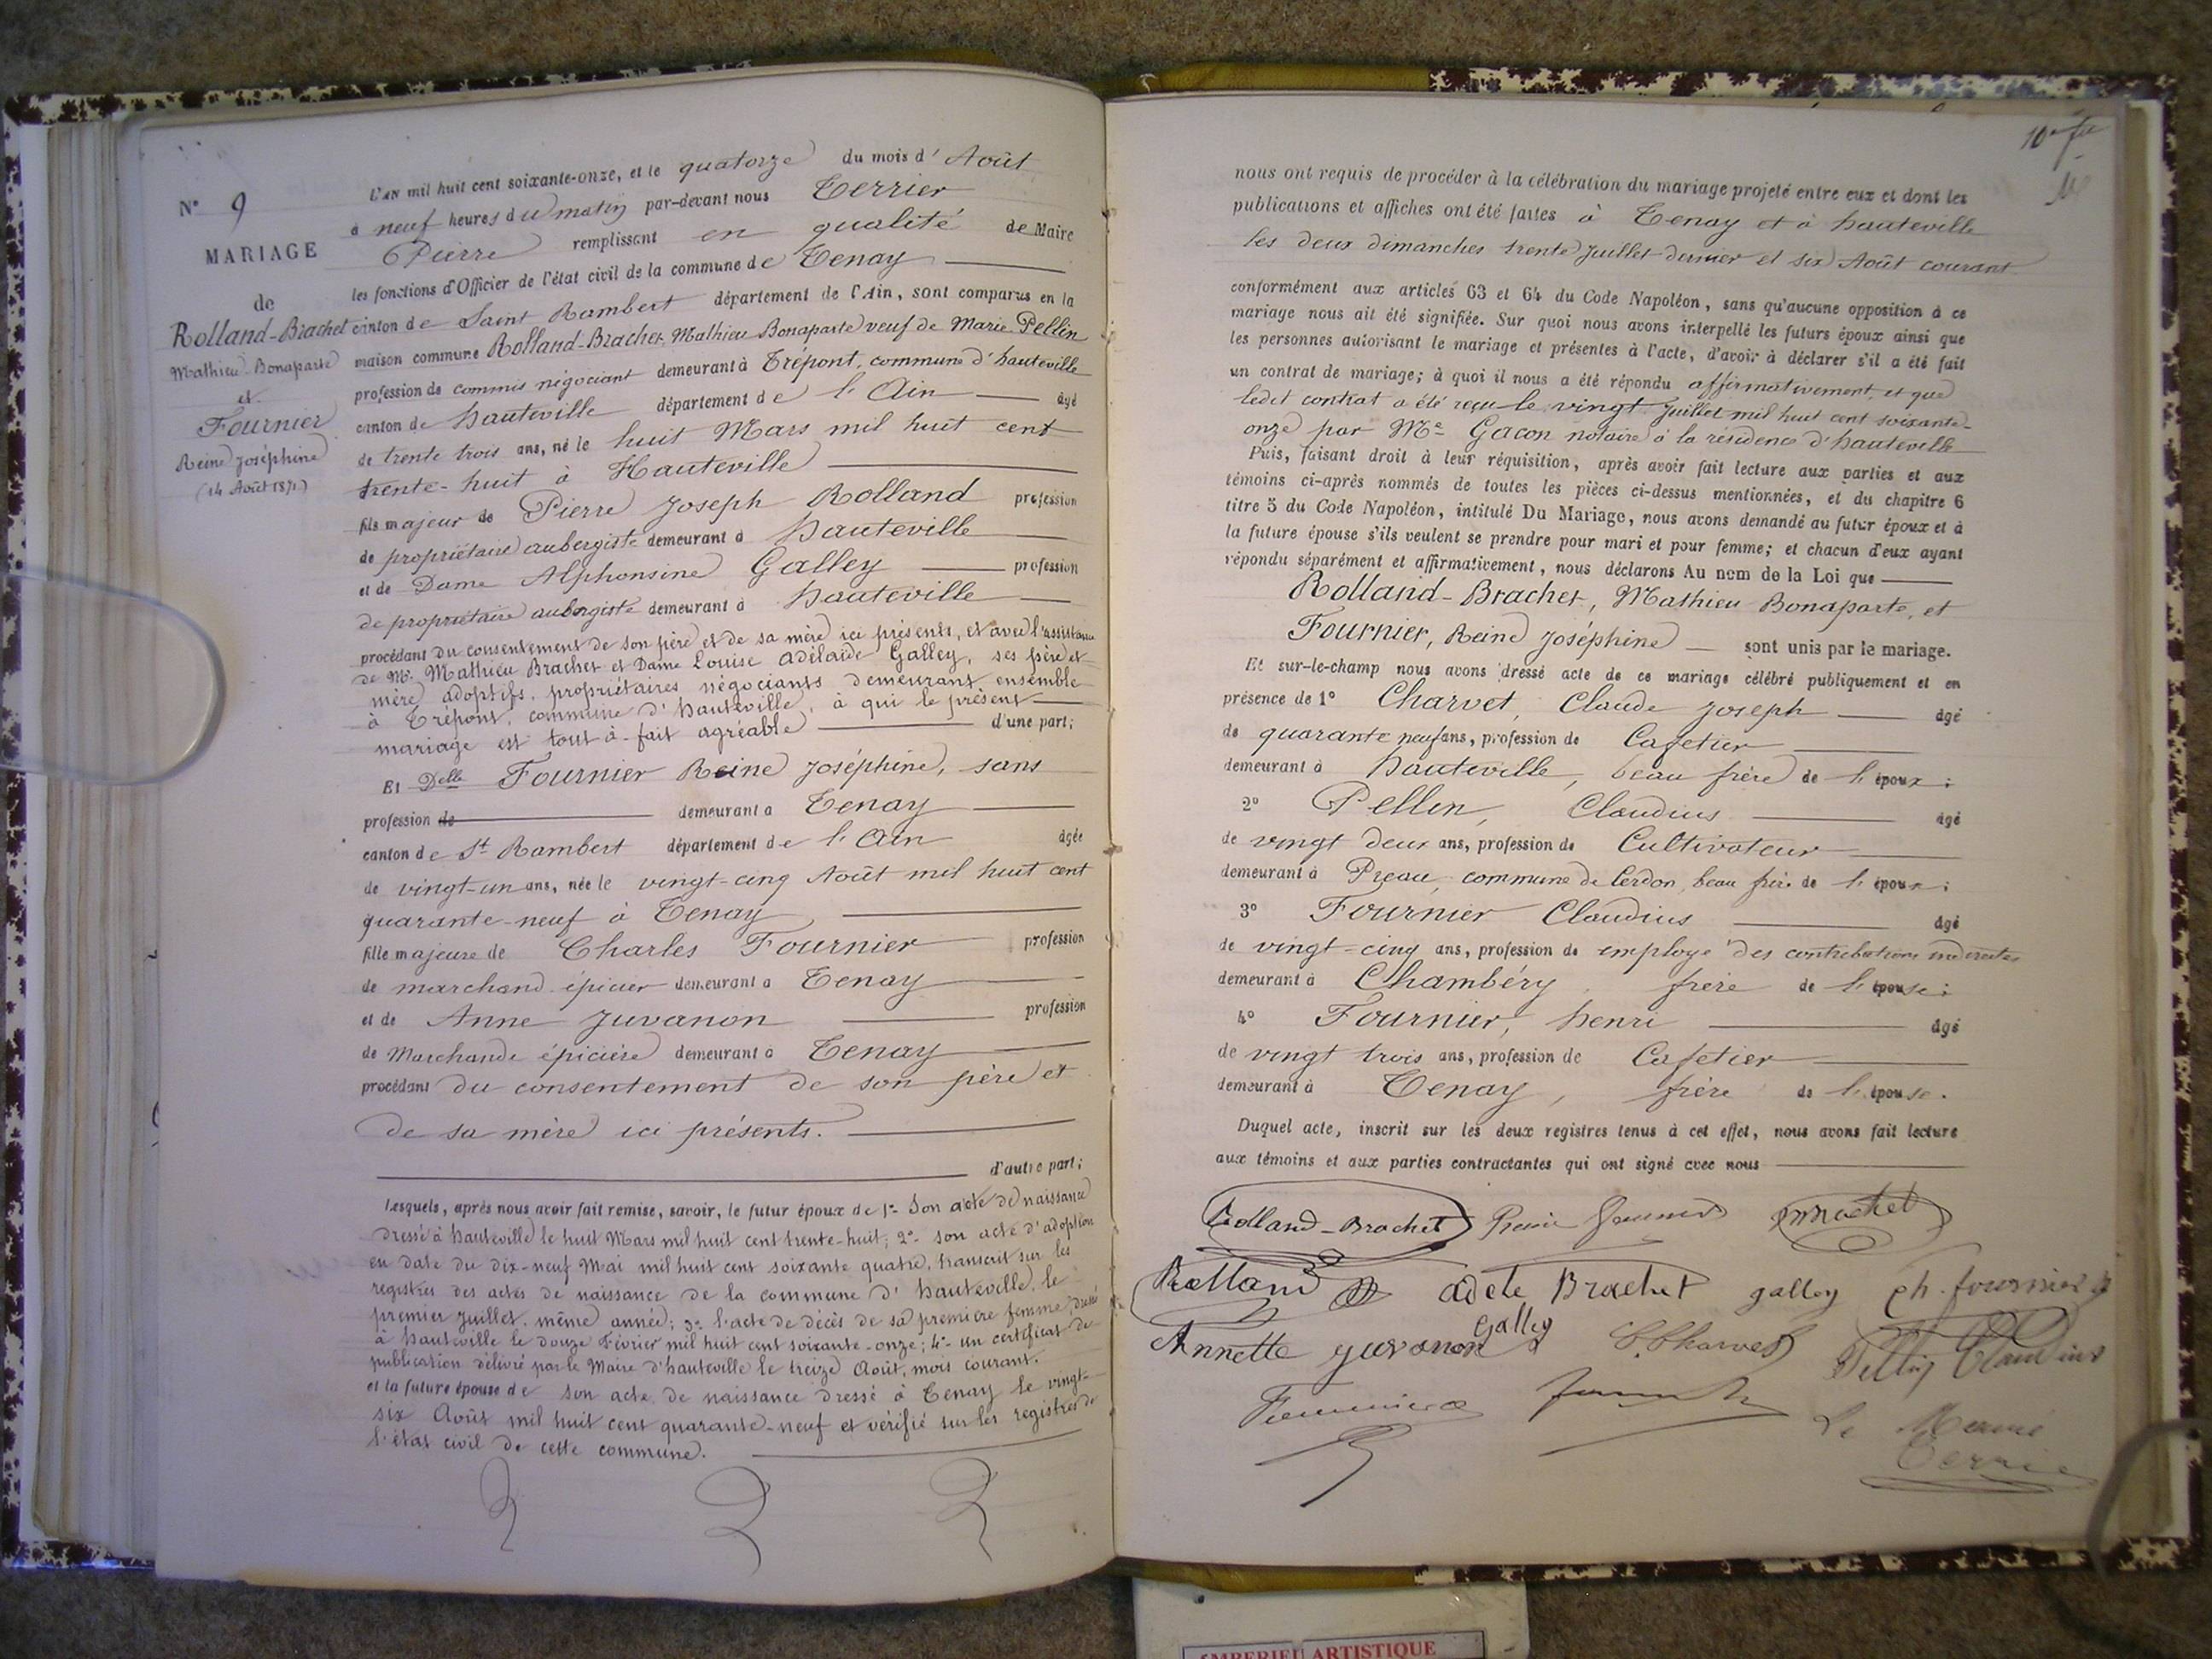 N° 9
MARIAGE
de
Rolland-Brachet
Mathieu Bonaparte
et
Fournier
Reine Joséphine
(14 Août 1871)
L'an mil huit cent soixante-onze, et le quatorze du mois d'Août
à neuf heures du matin par-devant nous Terrier
Pierre remplissant en qualité de Maire
les fonctions d'Officier de l'état civil de la commune de Tenay
canton de Saint Rambert département de l'Ain, sont comparus en la
maison commune Rolland-Brachet Mathieu Bonaparte veuf de Marie Pellin
profession de commis négociant demeurant à Trépont, commune d'hauteville
canton de hauteville département de l'Ain âgé
de trente trois ans, né le huit Mars mil huit cent
trente-huit à Hauteville
fils majeur de Pierre Joseph Rolland profession
de propriétaire aubergiste demeurant à hauteville
et de Dame Alphonsine Galley profession
de propriétaire aubergiste demeurant à hauteville
procédant du consentement de son père et de sa mère ici présents, et avec l'assistance
de Mr. Mathieu Brachet et Dame Louise Adélaïde Galley, ses père et
mère adoptifs, propriétaires négociants demeurant ensemble
à Trépont, commune d'hauteville, à qui le présent
mariage est tout-à-fait agréable d'une part;
Et Delle Fournier Reine Joséphine, sans
profession de demeurant à Tenay
canton de St Rambert département de l'Ain âgée
de vingt-un ans, née le vingt-cinq Août mil huit cent
quarante-neuf à Tenay
fille majeure de Charles Fournier profession
de marchand épicier demeurant à Tenay
et de Anne Juvanon profession
de Marchande épicière demeurant à Tenay
procédant du consentement de son père et
de sa mère ici présents.
d'autre part;
Lesquels, après nous avoir fait remise, savoir, le futur époux de 1° Son acte de naissance
dressé à hauteville le huit Mars mil huit cent trente-huit; 2° son acte d'adoption
en date du dix-neuf Mai mil huit cent soixante quatre, transcrit sur les
registres des actes de naissance de la commune d'hauteville, le
premier juillet, même année; 3° l'acte de décès de sa première femme, dressé
à hauteville le douze Février mil huit cent soixante-onze; 4° un certificat de
publication délivré par le Maire d'hauteville le treize Août, mois courant.
et la future épouse de son acte de naissance dressé à Tenay le vingt-
six Août mil huit cent quarante-neuf et vérifié sur les registres de
l'état civil de cette commune.
nous ont requis de procéder à la célébration du mariage projeté entre eux et dont les
publications et affiches ont été faites à Tenay et à hauteville
les deux dimanches trente juillet dernier et six Août courant
conformément aux articles 63 et 64 du Code Napoléon, sans qu'aucune opposition à ce
mariage nous ait été signifiée. Sur quoi nous avons interpellé les futurs époux ainsi que
les personnes autorisant le mariage et présentes à l'acte, d'avoir à déclarer s'il a été fait
un contrat de mariage; à quoi il nous a été répondu affirmativement, et que
ledit contrat a été reçu le vingt juillet mil huit cent soixante-
onze par Me Gacon notaire à la résidence d'hauteville
Puis, faisant droit à leur réquisition, après avoir fait lecture aux parties et aux
témoins ci-après nommés de toutes les pièces ci-dessus mentionnées, et du chapitre 6
titre 5 du Code Napoléon, intitulé Du Mariage, nous avons demandé au futur époux et à
la future épouse s'ils veulent se prendre pour mari et pour femme; et chacun d'eux ayant
répondu séparément et affirmativement, nous déclarons Au nom de la Loi que
Rolland-Brachet, Mathieu Bonaparte, et
Fournier, Reine Joséphine sont unis par le mariage.
Et sur-le-champ nous avons dressé acte de ce mariage célébré publiquement et en
présence de 1° Charvet, Claude Joseph âgé
de quarante neuf ans, profession de Cafetier
demeurant à hauteville, beau frère de l'époux;
2° Pellin, Claudius âgé
de vingt deux ans, profession de Cultivateur
demeurant à Preau, commune de Cerdon, beau frère de l'époux;
3° Fournier Claudius âgé
de vingt-cinq ans, profession de employé des contributions indirectes
demeurant à Chambéry, frère de l'épouse;
4° Fournier, henri âgé
de vingt trois ans, profession de Cafetier
demeurant à Tenay, frère de l'épouse.
Duquel acte, inscrit sur les deux registres tenus à cet effet, nous avons fait lecture
aux témoins et aux parties contractantes qui ont signé avec nous
Rolland-Brachet Reine fournier Brachet
Rolland Adele Brachet galley ch. fournier
Galley
Annette juvanon C. Charvet Pellin Claudius
Fournier
Le Maire
Terrier
AMBERIEU ARTISTIQUE